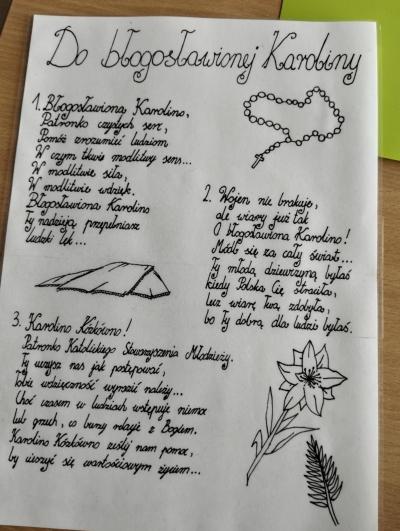 Do błogosławionej Karoliny
1. Błogosławiona Karolino,
Patronko czystych serc,
Pomóż zrozumieć ludziom
W czym tkwie modlitwy sens...
W modlitwie siła,
W modlitwie wdzięk.
Błogosławiona Karolino
Ty nadzieją przepełniasz
ludzki lęk...
2. Wojen nie brakuje,
ale wiary już tak
O błogosławiona Karolino!
Módl się za cały świat...
Ty młodą dziewczyną byłaś
kiedy Polska Cię straciła,
lecz wiarę Twą zdobyła,
bo Ty dobrą dla ludzi byłaś.
3. Karolino Kózkówno!
Patronko Katolickiego Stowarzyszenia Młodzieży.
Ty uczysz nas jak postępować,
Tobie wdzięczność wyrazić należy...
Choć czasem w ludziach wstępuje niemoc
lub grzech, co burzy relacje z Bogiem.
Karolino Kózkówno ześlij nam pomoc,
by cieszyć się wartościowym życiem...